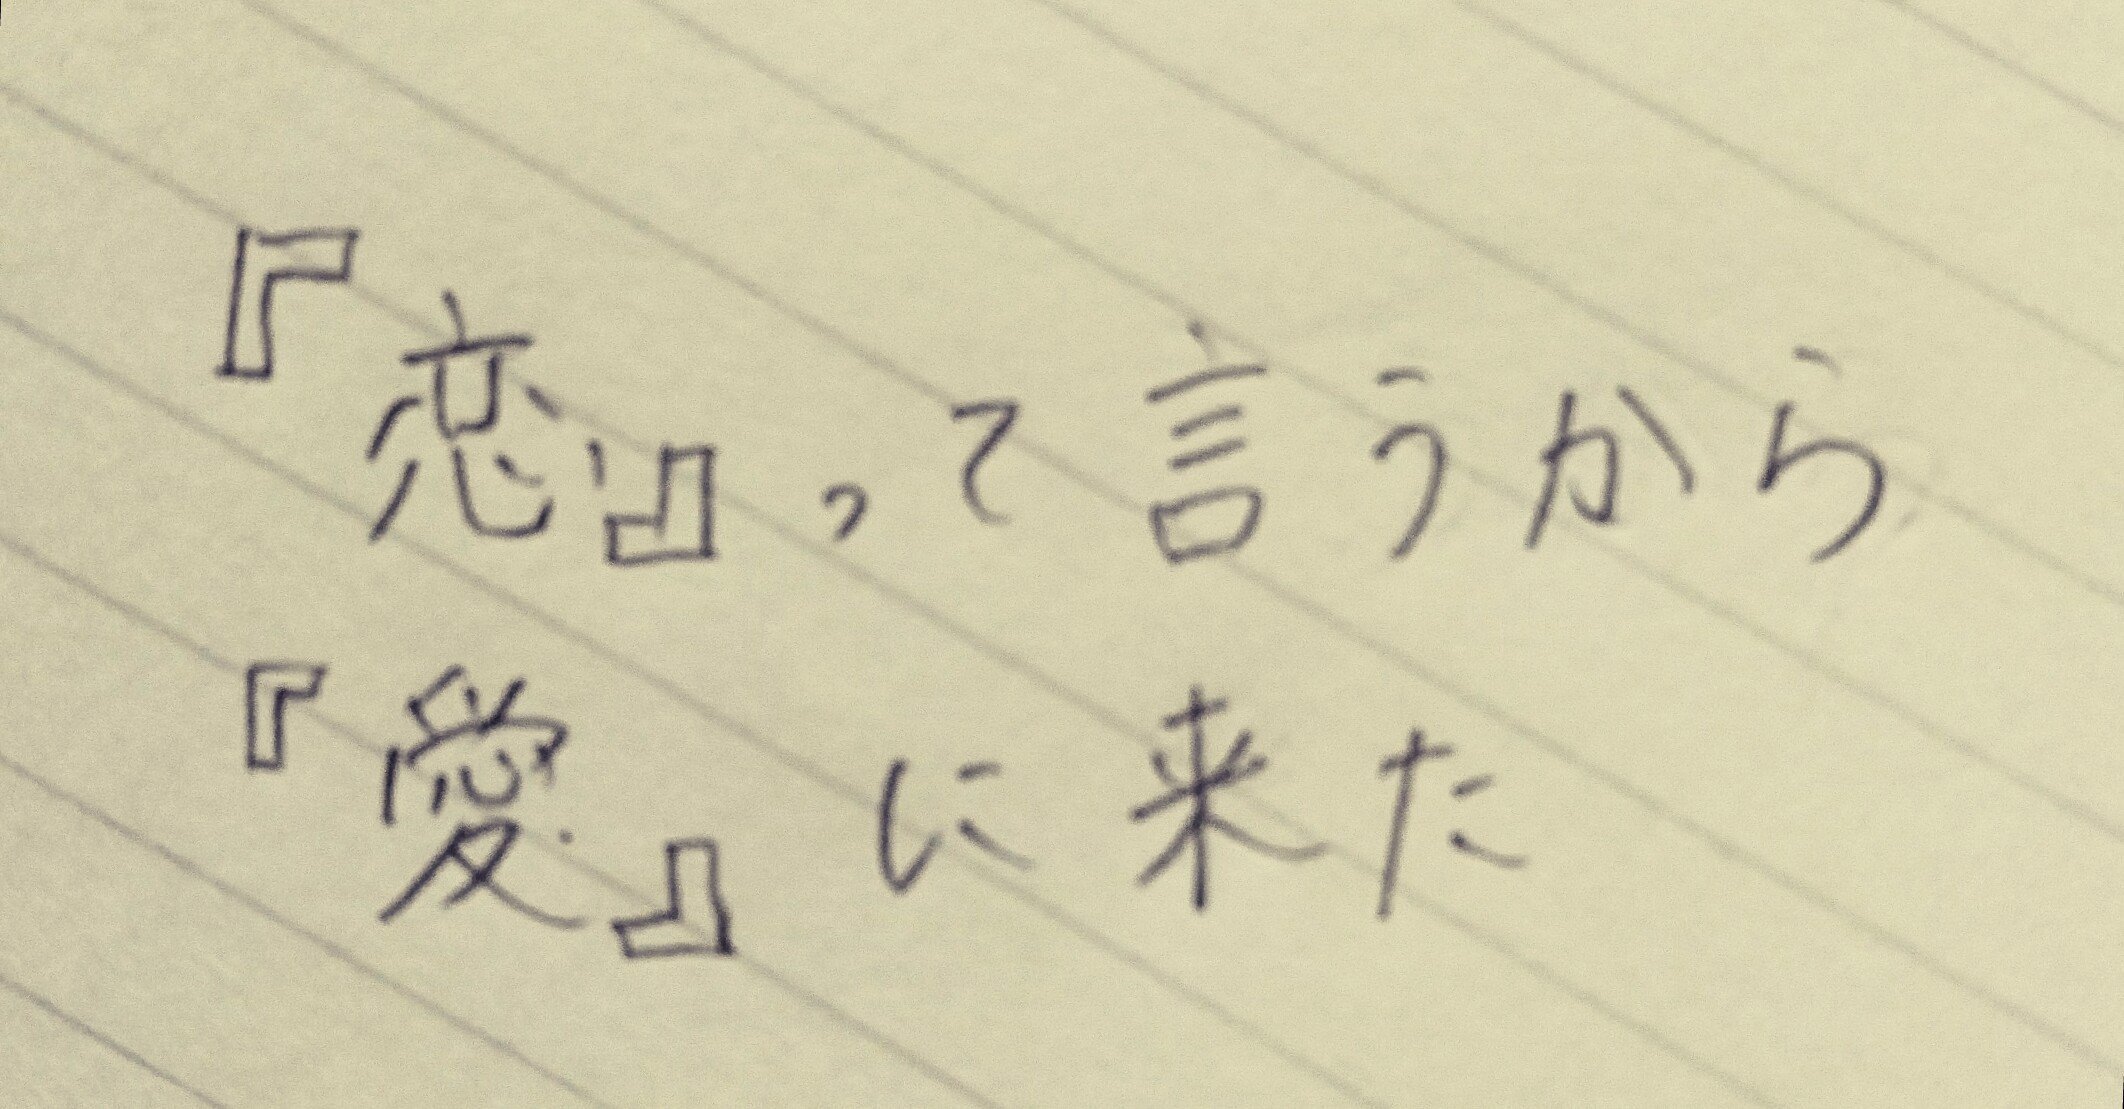 『恋』って言うから
『愛』に来た